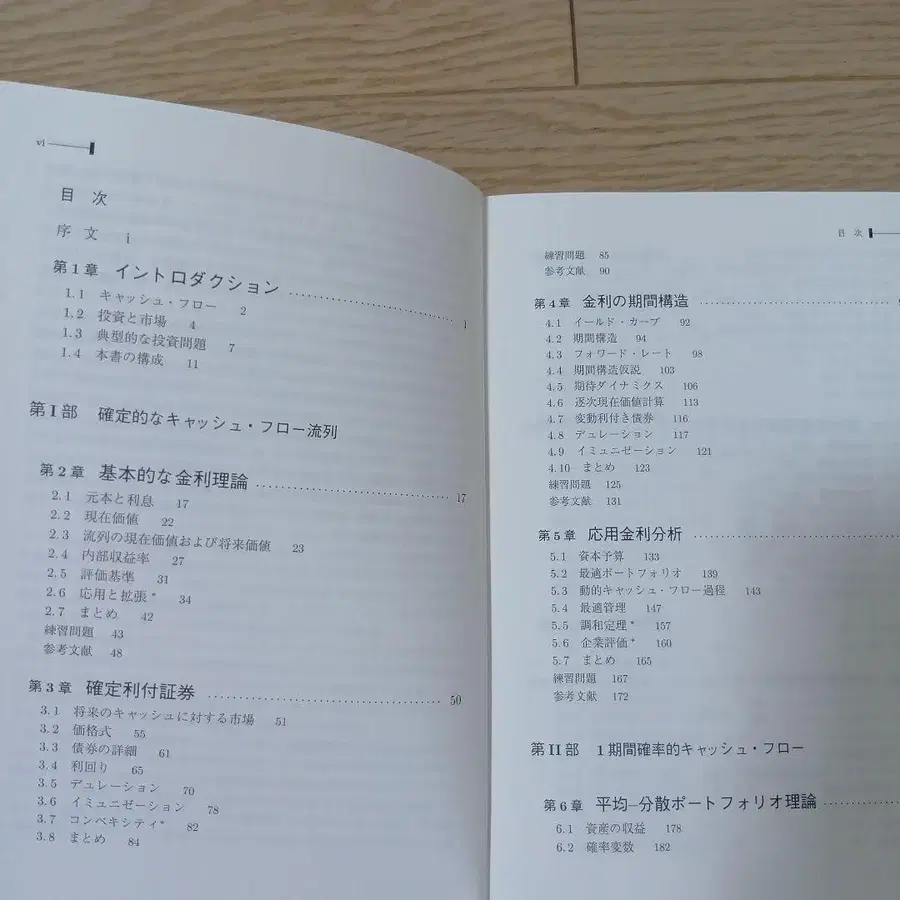 vi
目 次
序 文 i
第1章 イントロダクション 1
1.1 キャッシュ・フロー 2
1.2 投資と市場 4
1.3 典型的な投資問題 7
1.4 本書の構成 11
第I部 確定的なキャッシュ・フロー流列
第2章 基本的な金利理論 17
2.1 元本と利息 17
2.2 現在価値 22
2.3 流列の現在価値および将来価値 23
2.4 内部収益率 27
2.5 評価基準 31
2.6 応用と拡張* 34
2.7 まとめ 42
練習問題 43
参考文献 48
第3章 確定利付証券 50
3.1 将来のキャッシュに対する市場 51
3.2 価格式 55
3.3 債券の詳細 61
3.4 利回り 65
3.5 デュレーション 70
3.6 イミュニゼーション 78
3.7 コンベキシティ* 82
3.8 まとめ 84
目 次
練習問題 85
参考文献 90
第4章 金利の期間構造
4.1 イールド・カーブ 92
4.2 期間構造 94
4.3 フォワード・レート 98
4.4 期間構造仮説 103
4.5 期待ダイナミクス 106
4.6 逐次現在価値計算 113
4.7 変動利付き債券 116
4.8 デュレーション 117
4.9 イミュニゼーション 121
4.10 まとめ 123
練習問題 125
参考文献 131
第5章 応用金利分析
5.1 資本予算 133
5.2 最適ポートフォリオ 139
5.3 動的キャッシュ・フロー過程 143
5.4 最適管理 147
5.5 調和定理* 157
5.6 企業評価* 160
5.7 まとめ 165
練習問題 167
参考文献 172
第II部 1期間確率的キャッシュ・フロー
第6章 平均–分散ポートフォリオ理論
6.1 資産の収益 178
6.2 確率変数 182